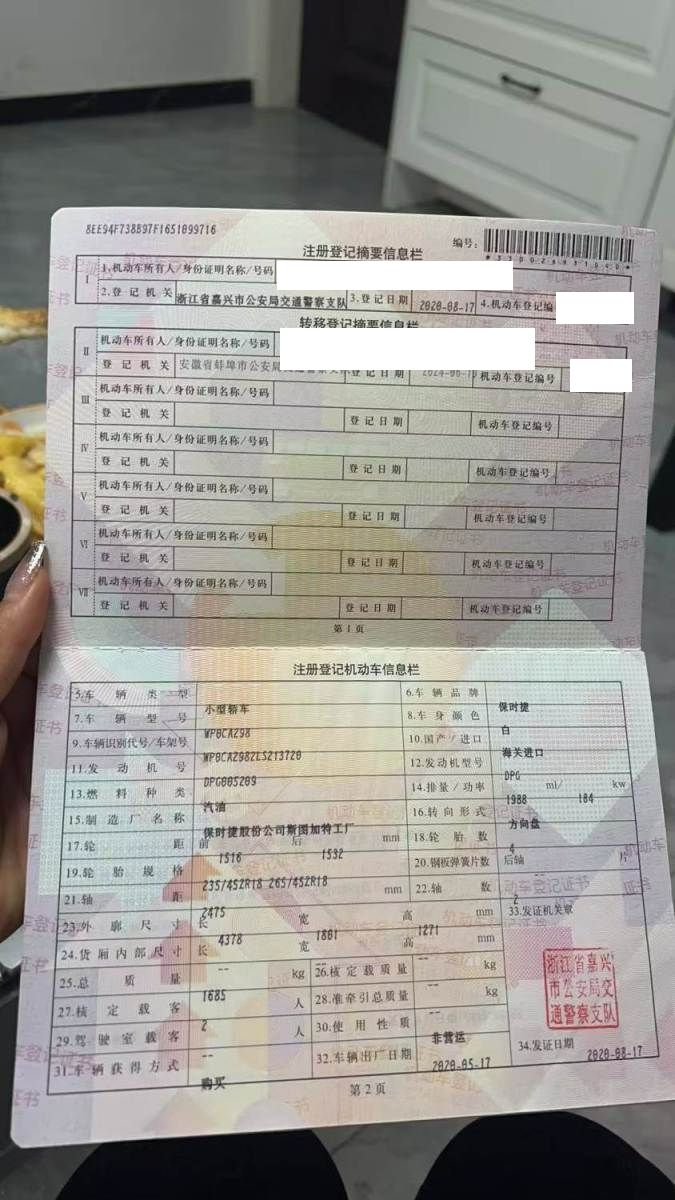 8EE94F738B97F1651099716
编号：
注册登记摘要信息栏
I 1.机动车所有人/身份证明名称/号码
2.登记机关 浙江省嘉兴市公安局交通警察支队 3.登记日期 2020-08-17 4.机动车登记编
转移登记摘要信息栏
II 机动车所有人/身份证明名称/号码
登记机关 安徽省蚌埠市公安局 登记日期 机动车登记编号
III 机动车所有人/身份证明名称/号码
登记机关 登记日期 机动车登记编号
IV 机动车所有人/身份证明名称/号码
登记机关 登记日期 机动车登记编号
V 机动车所有人/身份证明名称/号码
登记机关 登记日期 机动车登记编号
VI 机动车所有人/身份证明名称/号码
登记机关 登记日期 机动车登记编号
VII 机动车所有人/身份证明名称/号码
登记机关 登记日期 机动车登记编号
第1页
注册登记机动车信息栏
5.车辆类型 小型轿车 6.车辆品牌 保时捷
7.车辆型号 WP0CA298 8.车身颜色 白
9.车辆识别代号/车架号 WP0CA2982LS213720 10.国产/进口 海关进口
11.发动机号 DPG005209 12.发动机型号 DPG
13.燃料种类 汽油 14.排量/功率 1988 ml/ 184 kw
15.制造厂名称 保时捷股份公司斯图加特工厂 16.转向形式 方向盘
17.轮距 前 1516 后 1532 mm 18.轮胎数 4
19.轮胎规格 235/45ZR18 265/45ZR18 20.钢板弹簧片数 后轴 片
21.轴距 2475 mm 22.轴数 2
23.外廓尺寸 长 4378 宽 1801 高 1271 mm 33.发证机关章
24.货厢内部尺寸 长 -- 宽 -- 高 -- mm
25.总质量 1685 kg 26.核定载质量 -- kg
27.核定载客 2 人 28.准牵引总质量 -- kg
29.驾驶室载客 -- 人 30.使用性质 非营运
31.车辆获得方式 购买 32.车辆出厂日期 2020-05-17 34.发证日期 2020-08-17
浙江省嘉兴
市公安局交
通警察支队
第2页